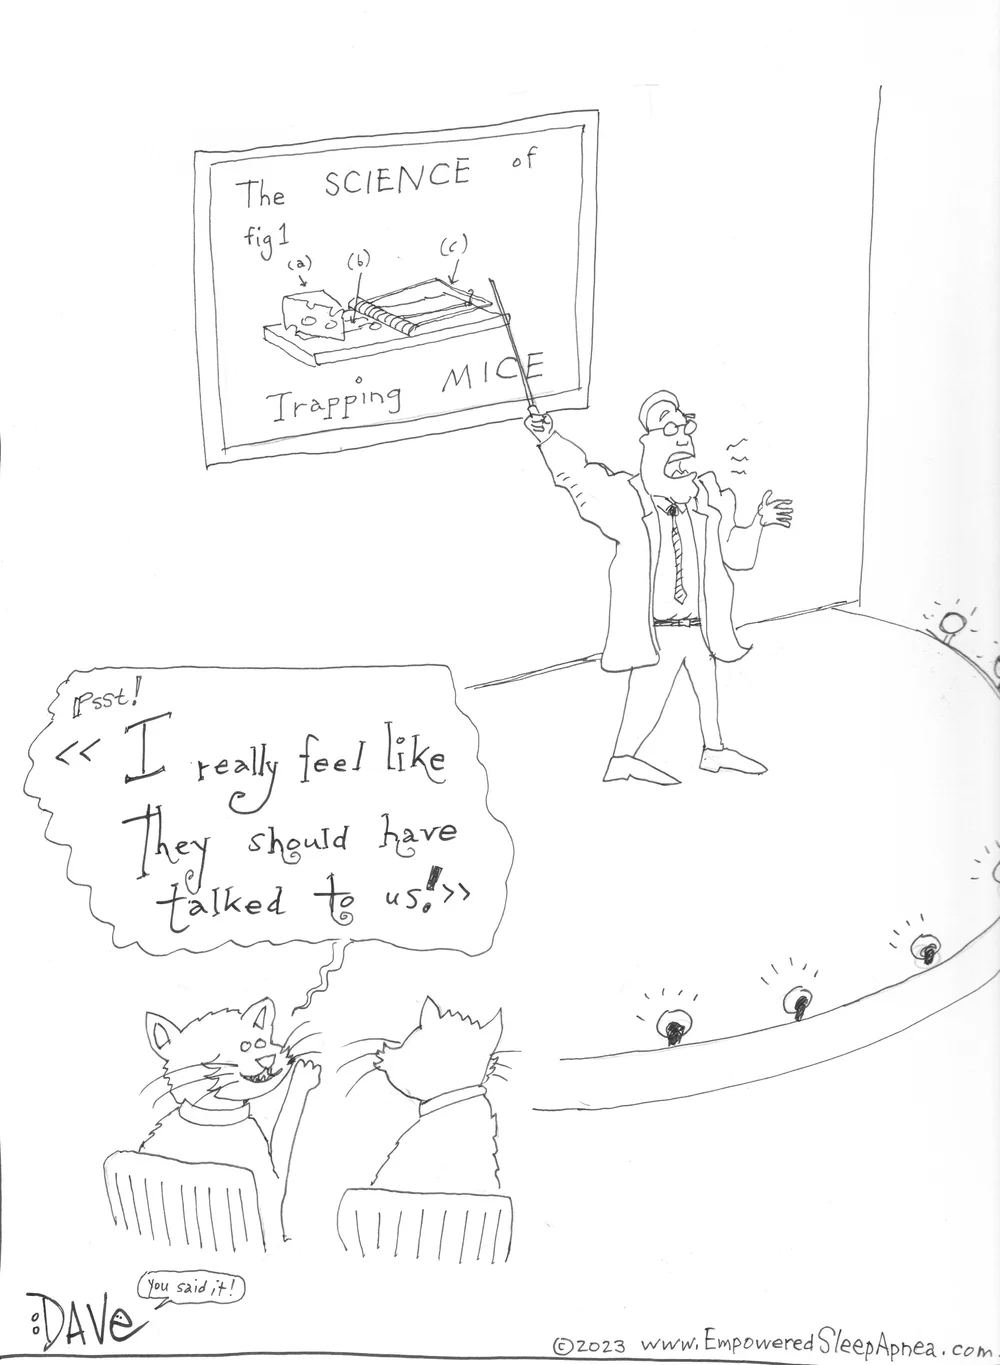 The SCIENCE of
fig 1
(a) (b) (c)
Trapping MICE
Psst!
<< I really feel like
They should have
talked to us!>>
You said it!
:DAVe
©2023 www.EmpoweredSleepApnea.com